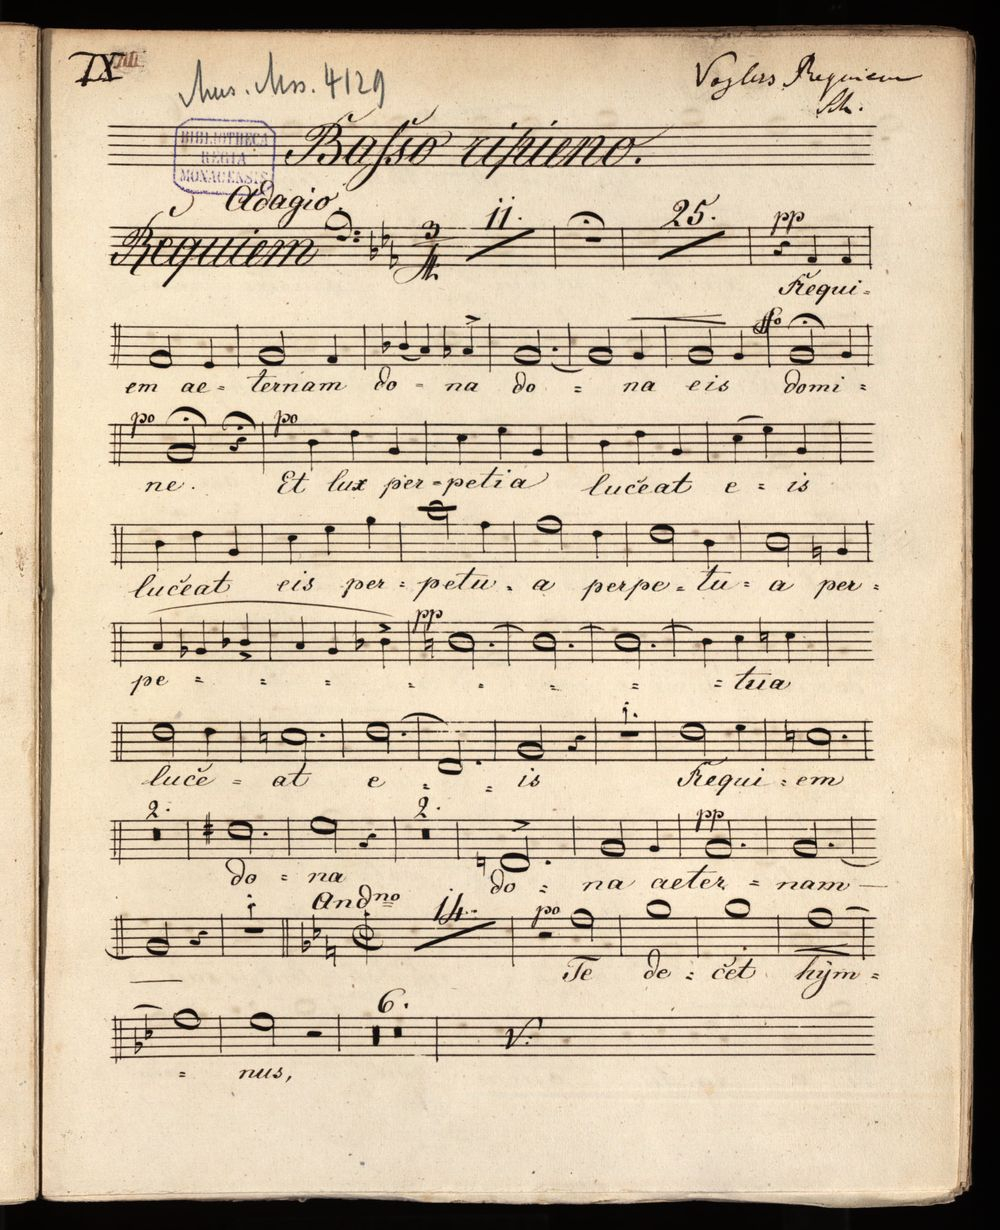 IX
Mus. Mss. 4129
Voglers Requiem
Sch.
BIBLIOTHECA
REGIA
MONACENSIS
Basso ripieno.
Adagio.
Requiem 3/4 11. 25. pp
Requi-
ffo
em ae - ternam do - na do - na eis domi -
po po
ne. Et lux per-petia luceat e - is
luceat eis per-petu - a perpe-tu-a per-
pp
pe - - - - - - - tua
1.
luce - at e - - is Requi-em
2. 2. pp
do - na do - na aeter - nam
1. Andno 14. po
Te de - cet hym -
6. V:
- nus,